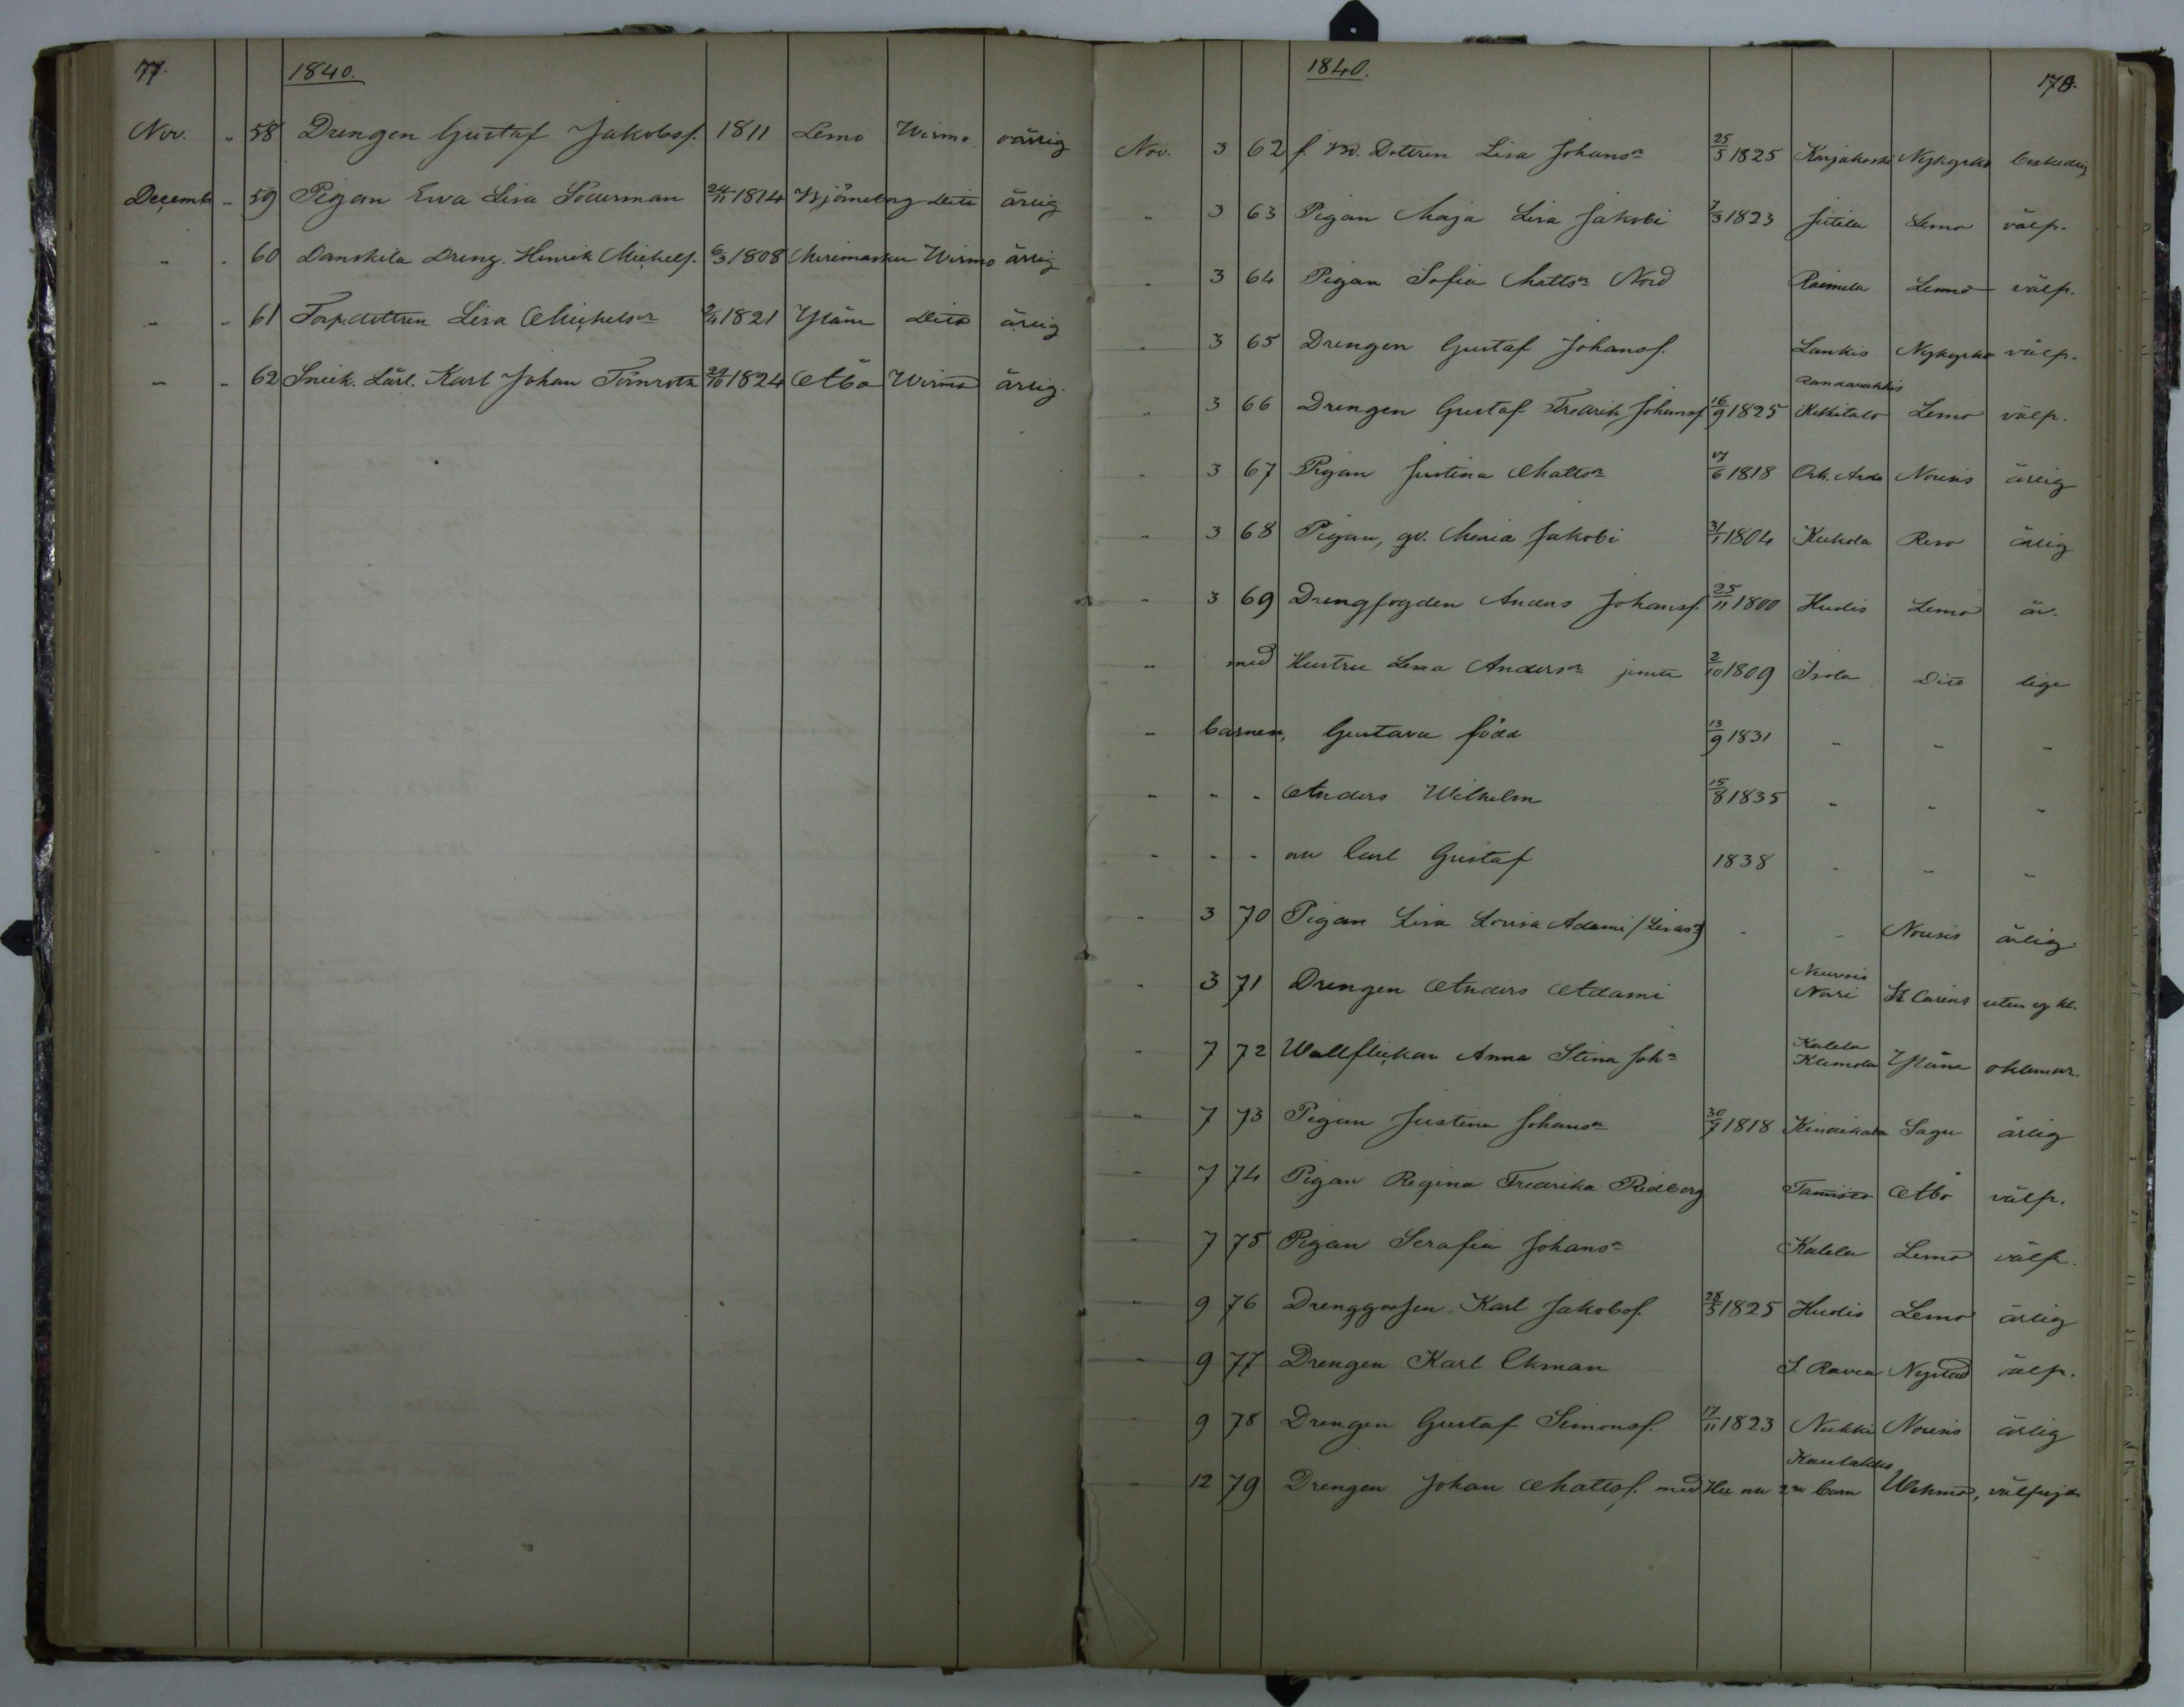 77.
1840.
Nov. " 58 Drengen Gustaf Jakobsf. 1811 Lemo Wirmo oärlig
Decemb - 59 Pigan Ewa Lisa Söderman 24/11 1814 Björneborg Dito ärlig
- - 60 Danskila Dreng. Henrik Michelsf. 6/3 1808 Merimasku Wirmo ärlig
- - 61 Torp.dottren Lisa Michelsr 2/11 1821 Yläne Dito ärlig
- - 62 Snick. Lärl. Karl Johan Törnroth 29/10 1824 Åbo Wirmo ärlig.
1840.
178.
Nov. 3 62 f. Bd. Dottren Lisa Johansr 25/5 1825 Karjakoski Nykyrko beskedlig
- 3 63 Pigan Maja Lisa Jakobi 7/3 1823 Jutila Lemo välfr.
- 3 64 Pigan Sofia Mattsr Nord Raimela Lemo välfr.
- 3 65 Drengen Gustaf Johansf. Lankis Nykyrko välfr.
Randavahkis
" 3 66 Drengen Gustaf Fredrik Johansf 16/9 1825 Keskitalo Lemo välfr.
- 3 67 Pigan Justina Mattsr 17/6 1818 Nousis ärlig
- 3 68 Pigan, qv. Maria Jakobi 31/1 1804 Kukola Reso ärlig
- 3 69 Drengfogden Anders Johansf. 25/11 1800 Hudis Lemo är-
- med Hustru Lena Andersr jemte 2/10 1809 Isola Dito liga
- barnen, Gustava född 13/9 1831 - - -
- - - Anders Wilhelm 15/8 1835 - - -
- - - Carl Gustaf 1838 - - -
- 3 70 Pigan Lisa Lovisa Adami (Lisasr) - - Nousis ärlig
Neuvois
- 3 71 Drengen Anders Adami Nori St Carins utan
Kalela
- 7 72 Wallflickan Anna Stina Johr Klemola Yläne oklemar.
" 7 73 Pigan Justina Johansr 30/7 1818 Kindikala Sagu ärlig
- 7 74 Pigan Regina Fredrika Ridberg Tamisto Åbo välfr.
- 7 75 Pigan Serafia Johansr Kalela Lemo välfr.
" 9 76 Drenggossen Karl Jakobsf. 28/5 1825 Hudis Lemo ärlig
- 9 77 Drengen Karl Ekman Nystad välfr.
- 9 78 Drengen Gustaf Simonsf. 17/11 1823 Nukki Nousis ärlig
- 12 79 Drengen Johan Mattsf. med Hu barn Wehmo, välfrejd.